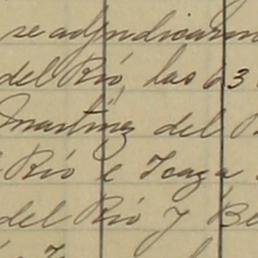 se adjudicaron
del Río, las 63
Martínez del
Río e Icaza
del Río y Be